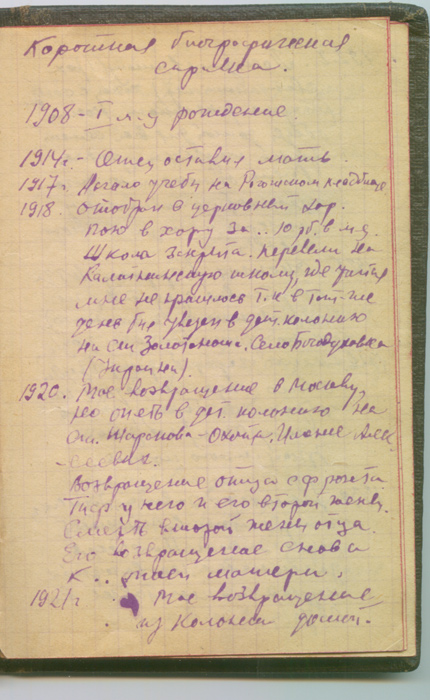 Короткая биографическая
справка.
1908 - I м-ц рождение.
1914г. - Отец оставил мать.
1917г. Начало учебы на Рогожском кладбище
1918. отобран в церковный хор.
пою в хору за .. 10 рб. в м-ц.
Школа закрыта. перевели на
Калитниковскую школу, где учится
мне не нравилось т.к. в том-же
день был увезен в дет. колонию
на ст. Золотоноша. Село Богодуховка
(Украина).
1920. Мое возвращение в Москву,
но опять в дет. колонию на
ст. Шарапова-Охота,
Возвращение отца с фронта.
Тиф у него и его второй жены.
Смерть второй жены отца.
Его возвращение снова
к .. моей матери.
1921г. Мое возвращение
из колонии домой.